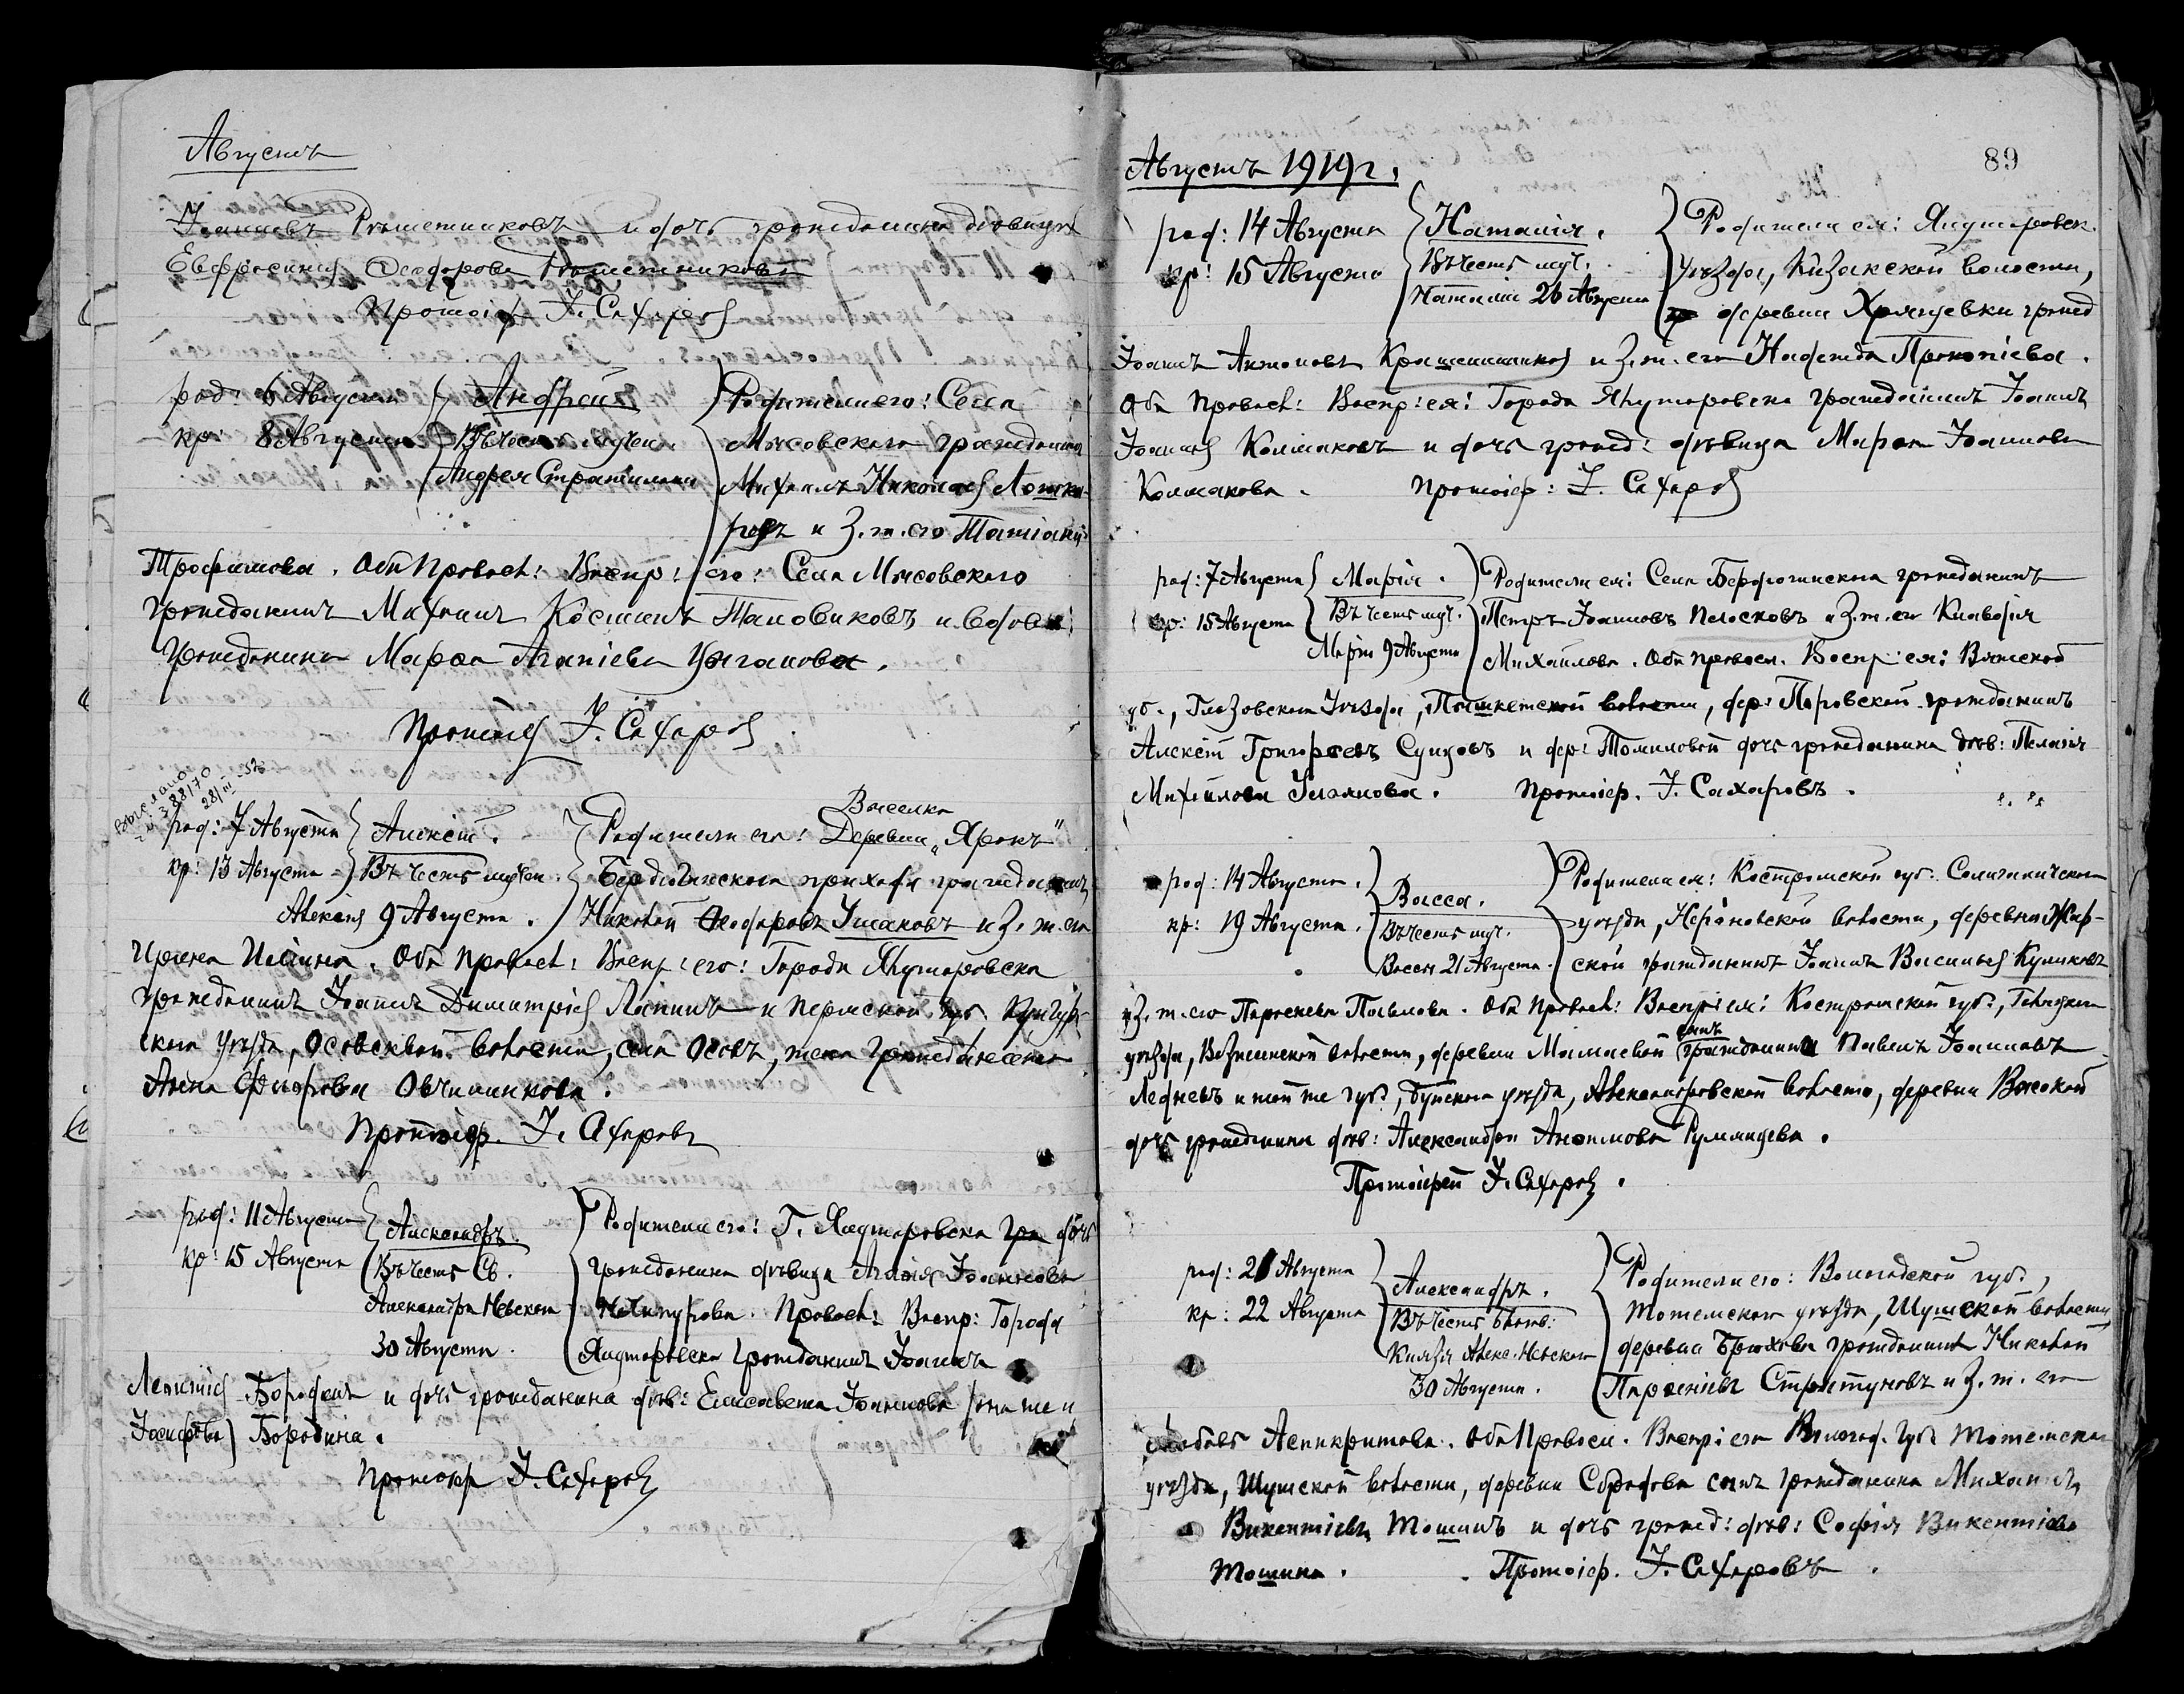 Августъ
Іоанновъ Рѣшетниковъ и дочь гражданина дѣвица
Евфросинія Ѳеодорова Рѣшетникова
Протоіер. І. Сахаровъ
род: 6 Августа { Андрей } Родители его: Села
кр: 8 Августа { Въ честь мучен. Мысовского гражданинъ
Андрея Стратилата Михаилъ Николаев
ровъ и з. ж. его Татіана
Трофимова. Оба правосл: Воспр: его: Села Мысовского
гражданинъ Михаилъ Косминъ Таловиковъ и вдова
гражданина Марѳа Агапіева Цыганова.
Протоіерей І. Сахаровъ
Выслано
28/III
Выселка
род: 7 Августа { Алексій. { Родители его: Деревни „Ярокъ"
кр: 13 Августа { Въ честь мучен. Бердюгинскаго прихода гражданинъ
Алексія 9 Августа. Николай Ѳеодоровъ Ушаковъ и з. ж. его
Ирина Иліина. Оба правосл: Воспр: его: Города Ялуторовска
гражданинъ Іоаннъ Димитріев Лапинъ и Пермской губ, Кунгур-
скаго уѣзда, Осовской волости, села Осовъ, жена гражданина
Анна Ѳеодорова Овчинникова.
Протоіер. І. Сахаровъ
род: 11 Августа { Александръ. } Родители его: Г. Ялуторовска дочь
кр: 15 Августа { Въ честь Св. гражданина дѣвица Агаѳія Іоаннова
Александра Невскаго Правосл: Воспр: Города
30 Августа. Ялуторовска гражданинъ Іоаннъ
Леонтіев Бородинъ и дочь гражданина дѣв: Елисавета Іоаннова (она же и
Іосифова) Бородина.
Протоіер І. Сахаровъ
89
Августъ 1919 г.
род: 14 Августа { Наталія. } Родители ея: Ялуторовск.
кр: 15 Августа { Въ честь муч. уѣзда, Кизакской волости,
Наталіи 26 Августа деревни Хрящевки гражд
Іоаннъ Антоновъ Крашенинников и з. ж. его Надежда Прокопіева.
Оба правосл: Воспр: ея: Города Ялуторовска гражданинъ Іоаннъ
Іоаннов Колмаковъ и дочь гражд: дѣвица Марѳа Іоаннова
Колмакова. Протоіер: І. Сахаровъ
род: 7 Августа { Марія. } Родители ея: Села Бердюгинскаго гражданинъ
кр: 15 Августа { Въ честь муч. Петръ Іоанновъ Плосковъ и з. ж. его Клавдія
Маріи 9 Августа Михайлова. Оба правосл. Воспр: ея: Вятской
губ., Глазовскаго уѣзда, волости, дер: Поровской гражданинъ
Алексій Григорьевъ Сунцовъ и дер: Томиловой дочь гражданина дѣв: Пелагія
Михайлова Улаянова. Протоіер. І. Сахаровъ.
род: 14 Августа. { Васса. } Родители ея: Костромской губ: Солигаличскаго
кр: 19 Августа. { Въ честь муч. уѣзда, Нероновской волости, деревни Жар-
Вассы 21 Августа. ской гражданинъ Іоаннъ Васильев Куликовъ
и з. ж. его Параскева Павлова. Оба правосл: Воспр: ея: Костромской губ:, Галичскаго
уѣзда, Вознесенской волости, деревни Мамаевой сынъ гражданина Павелъ Іоанновъ
Ледневъ и той же губ:, Буйскаго уѣзда, Александровской волости, деревни Высокой
дочь гражданина дѣв: Александра Анѳимова Румянцева.
Протоіерей І. Сахаровъ.
род: 21 Августа { Александръ. { Родители его: Вологодской губ:,
кр: 22 Августа { Въ честь благов: Тотемскаго уѣзда, Шуйской волости
Князя Алекс. Невскаго деревни Брюхова гражданинъ Николай
30 Августа. Парѳеніевъ Страстуновъ и з. ж. его
Любовь Асинкритова. Оба правосл. Воспр: его Вологод. губ: Тотемскаго
уѣзда, Шуйской волости, деревни Сбродова сынъ гражданина Михаилъ
Викентіевъ Тошинъ и дочь гражд: дѣв: Софія Викентіева
Тошина. Протоіер. І. Сахаровъ.